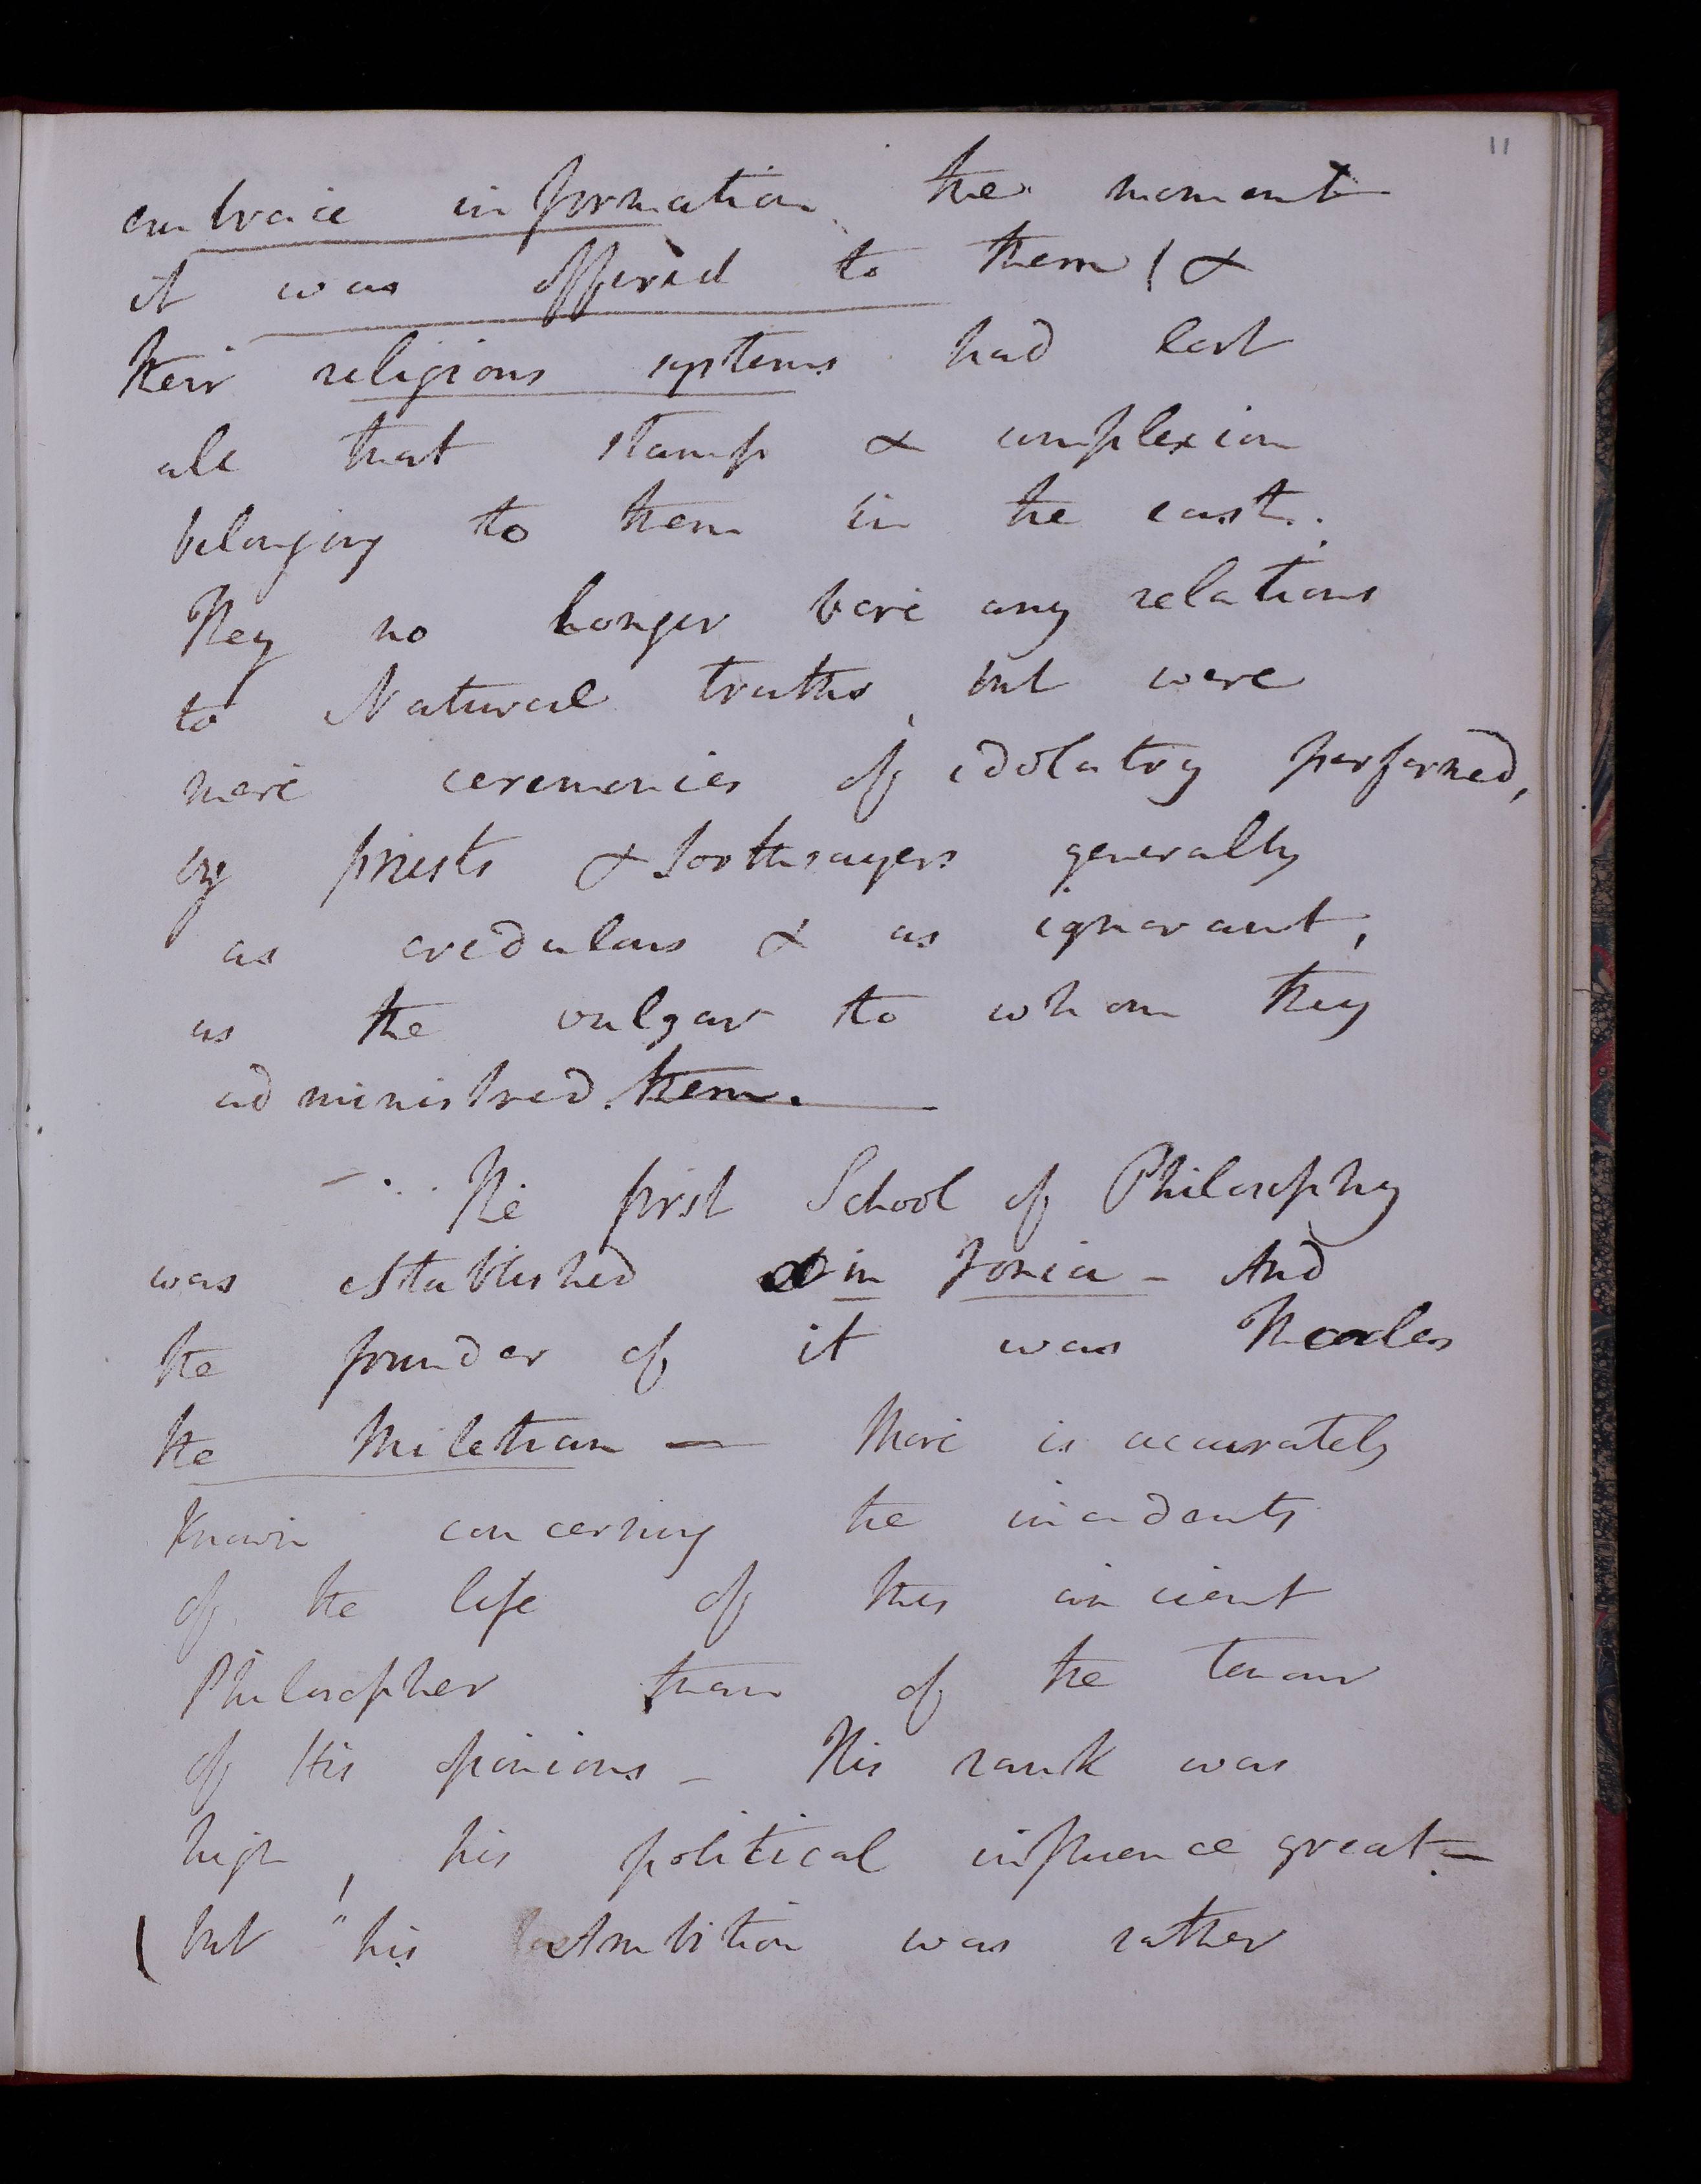 11
embrace information the moment
it was offered to them / &
their religious systems had lost
all that stamp & complexion
belonging to them in the east.
They no longer bore any relations
to Natural truths, but were
mere ceremonies of idolatry performed,
by priests & soothsayers generally
as credulous & as ignorant,
as the vulgar to whom they
administred them.
The first School of Philosophy
was established in Ionia - And
the founder of it was Thales
the Miletian — More is accurately
known concerning the incidents
of the life of this ancient
Philosopher than of the tenour
of His opinions - His rank was
high, his political influence great -
( but " his Ambition was rather